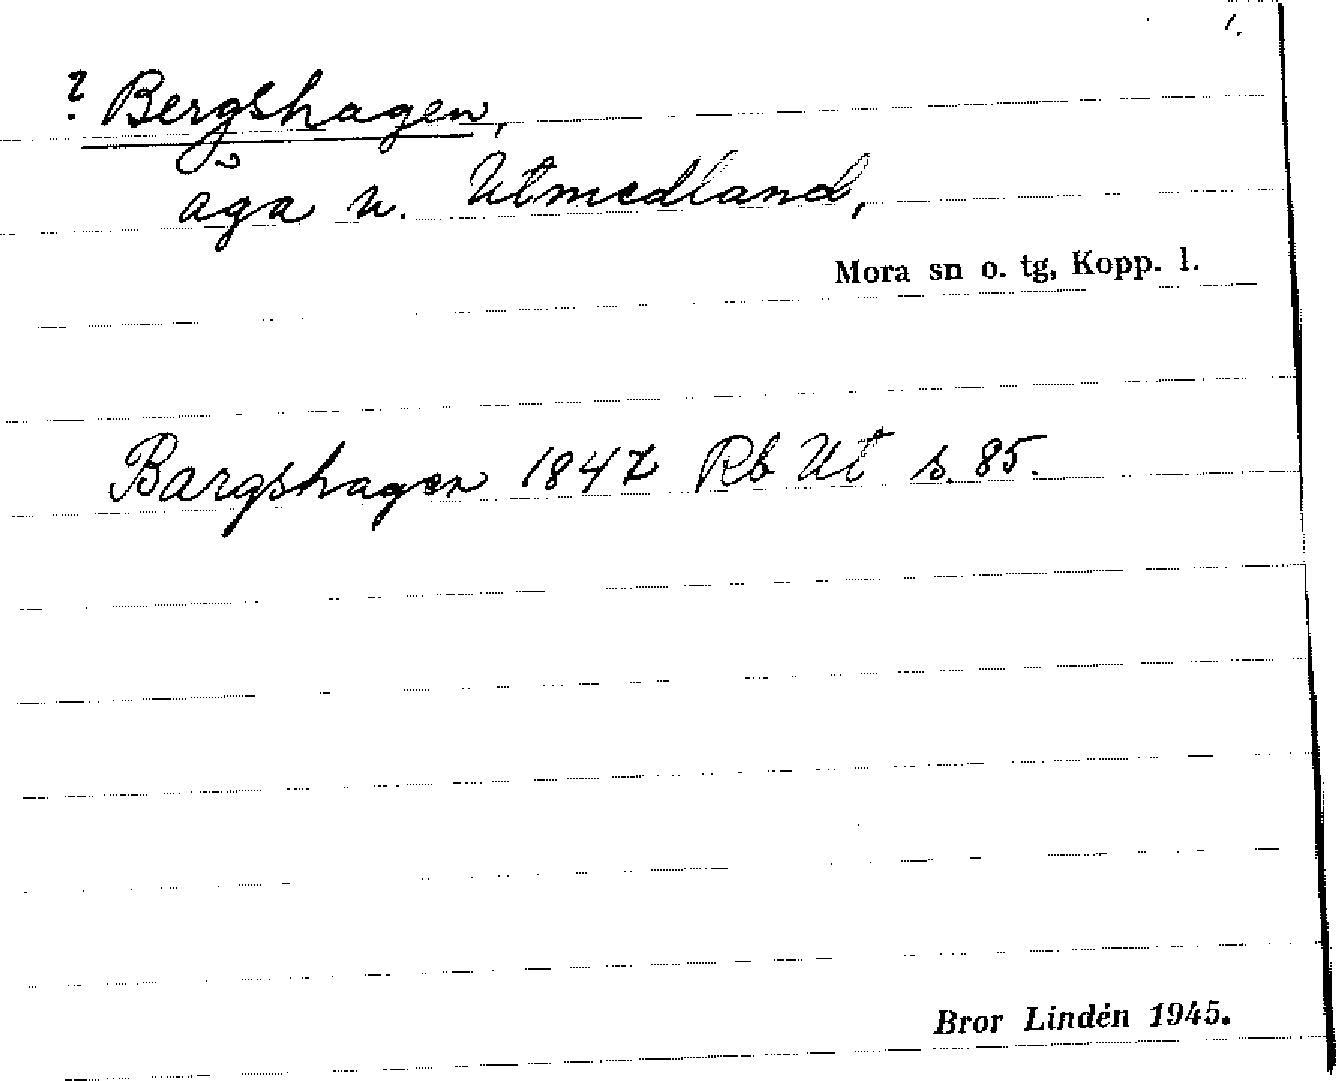 1.
? Bergshagen,
äga u. Utmedland,
Mora sn o. tg, Kopp. l.
Bargshagen 1847 Rb Ut s. 85.
Bror Lindén 1945.